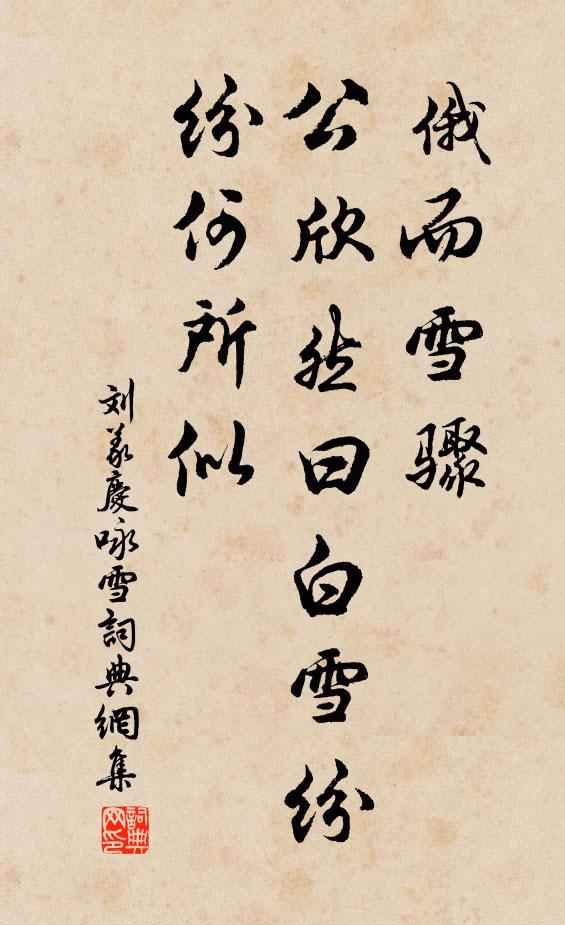 俄而雪骤
公欣然曰白雪纷
纷何所似
刘义慶咏雪詞典網集
詞典网印